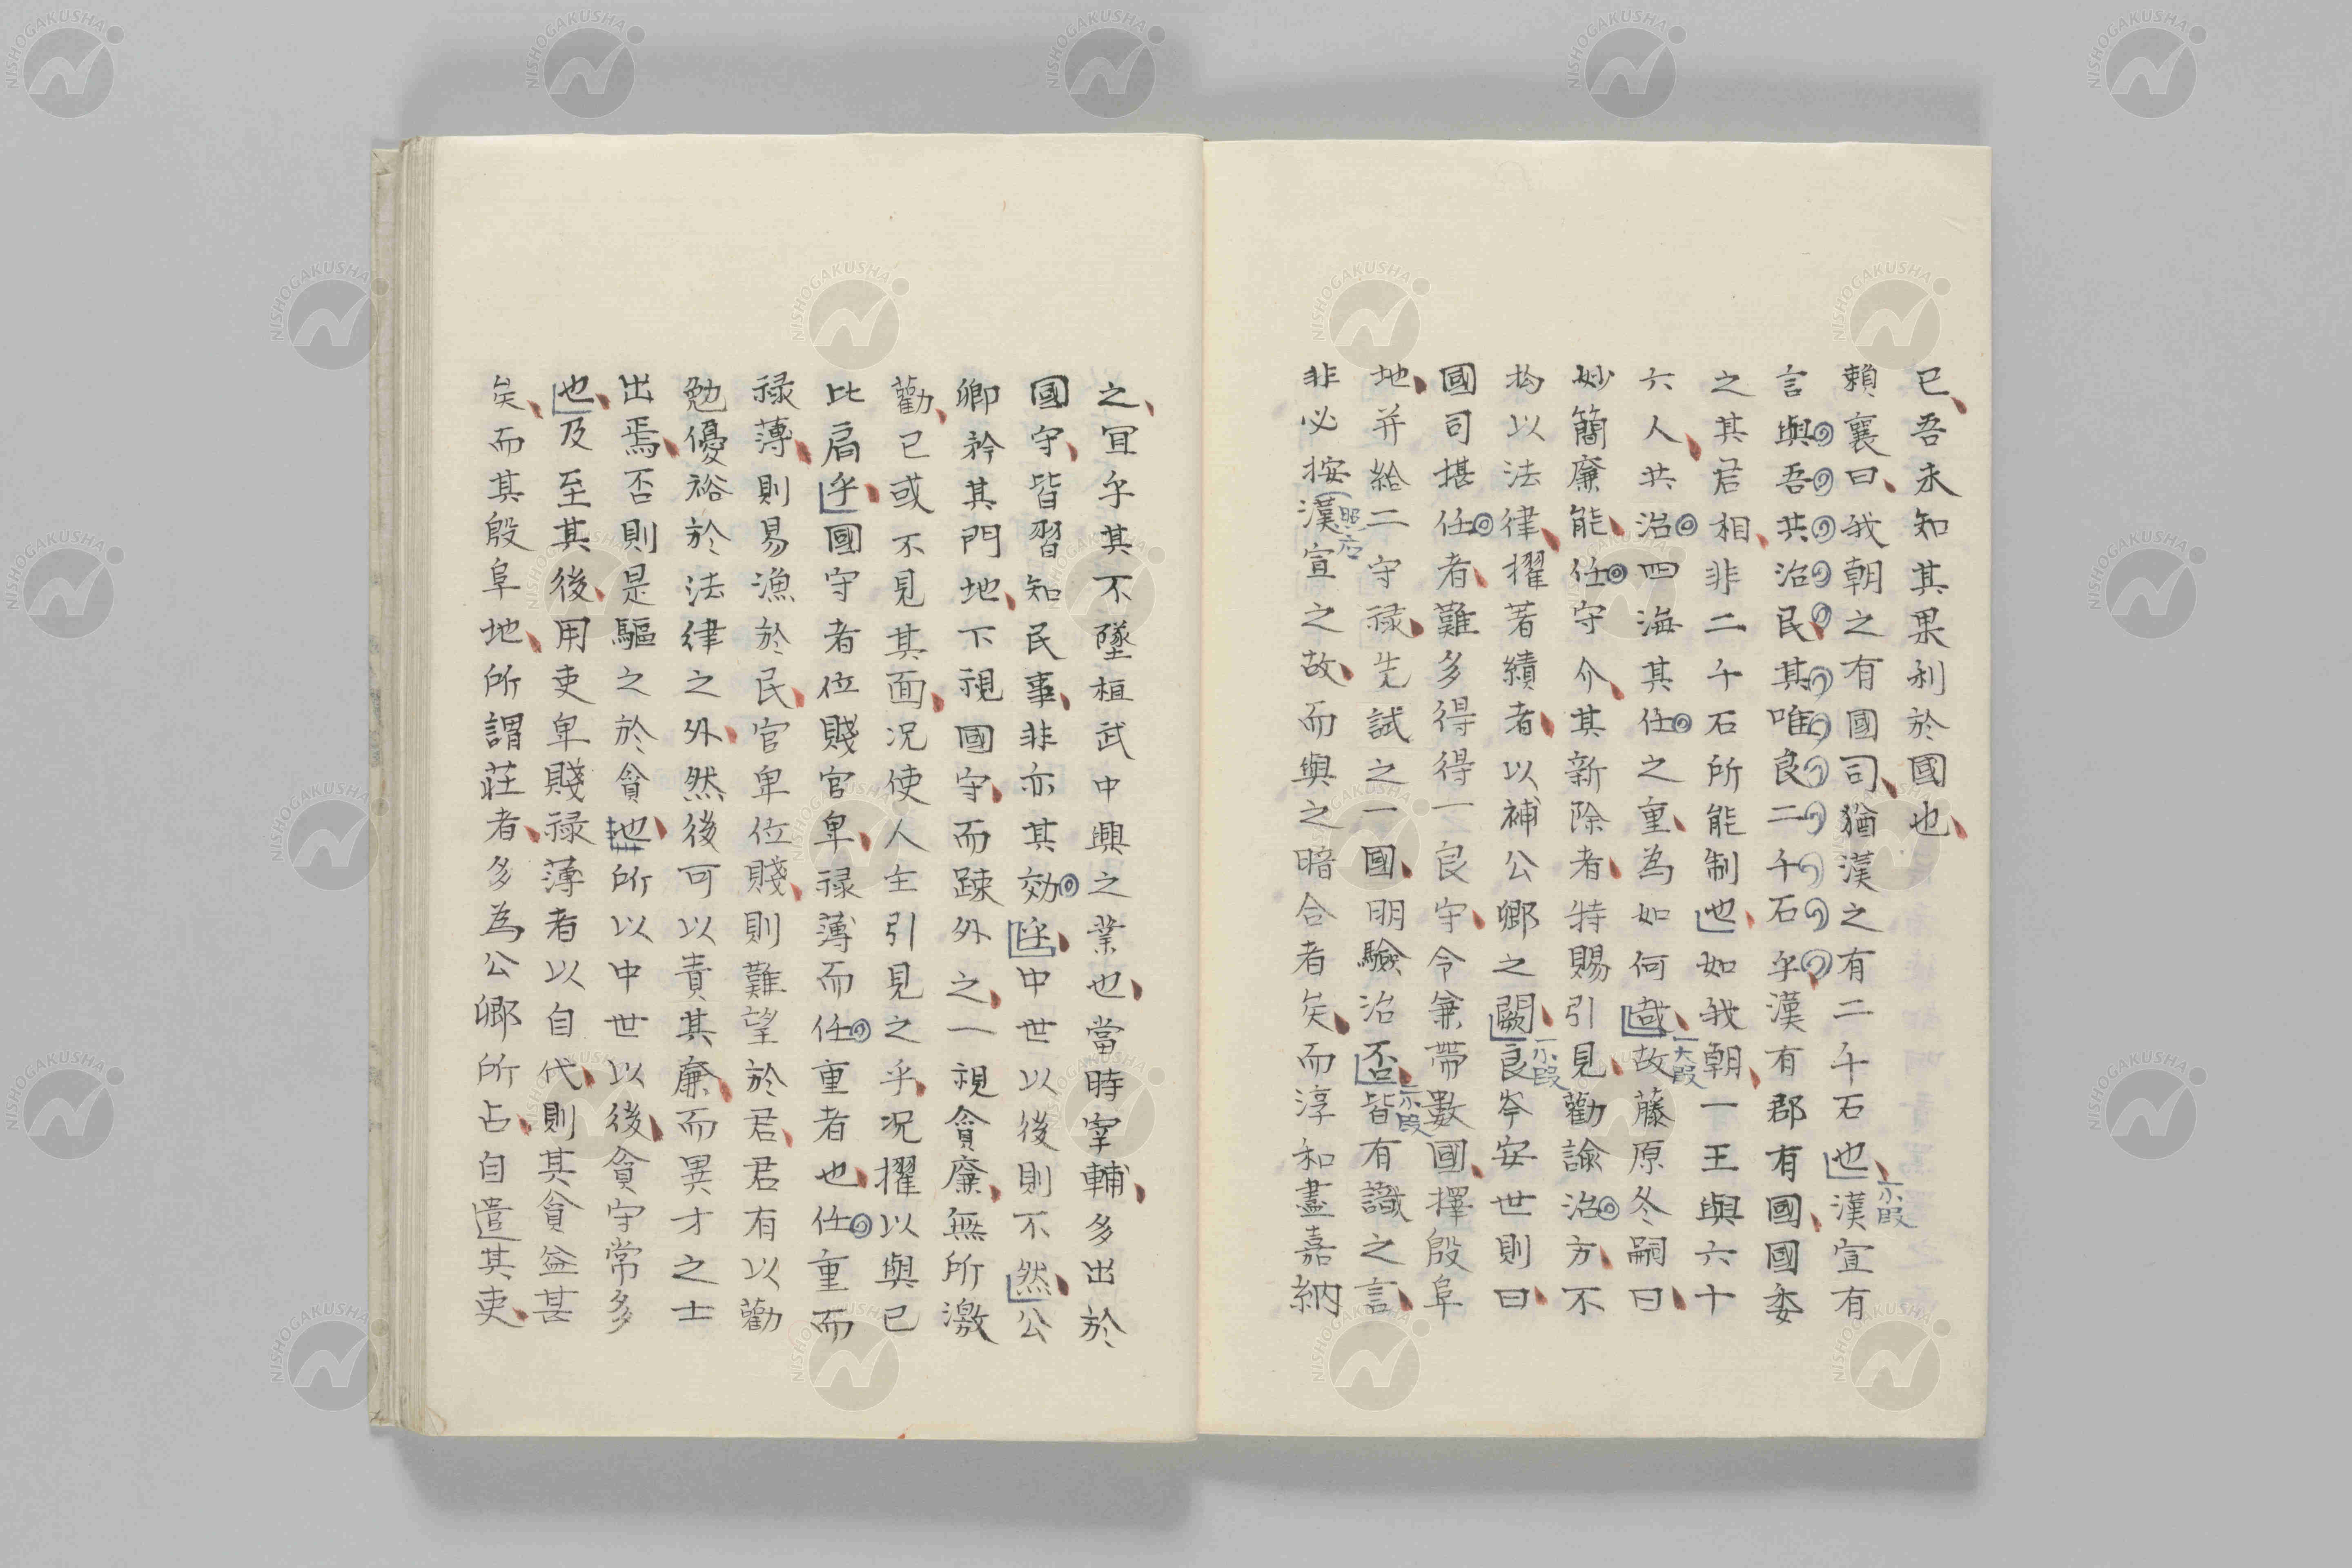 已吾未知其果利於國也
賴襄曰我朝之有國司猶漢之有二千石也漢宣有
小段
言與吾共治民其唯良二千石乎漢有郡有國國委
之其君相非二千石所能制也如我朝一王與六十
六人共治四海其任之重為如何哉故藤原冬嗣曰
一大段
妙簡廉能任守介其新除者特賜引見勸諭治方不
拘以法律擢著績者以補公卿之闕良岑安世則曰
一小段
國司堪任者難多得得一良守令兼帶數國擇殷阜
地并給二守祿先試之一國明驗治否皆有識之言
二小段
非必按漢宣之故而與之暗合者矣而淳和盡嘉納
照應
之宜乎其不墜桓武中興之業也當時宰輔多出於
國守皆習知民事非亦其効乎中世以後則不然公
卿矜其門地下視國守而踈外之一視貪廉無所激
勸已或不見其面況使人主引見之乎況擢以與已
比肩乎國守者位賤官卑祿薄而任重者也任重而
祿薄則易漁於民官卑位賤則難望於君君有以勸
勉優裕於法律之外然後可以責其廉而異才之士
出焉否則是驅之於貪也所以中世以後貪守常多
也及至其後用吏卑賤祿薄者以自代則其貪益甚
矣而其殷阜地所謂莊者多為公卿所占自遣其吏
NISHOGAKUSHA